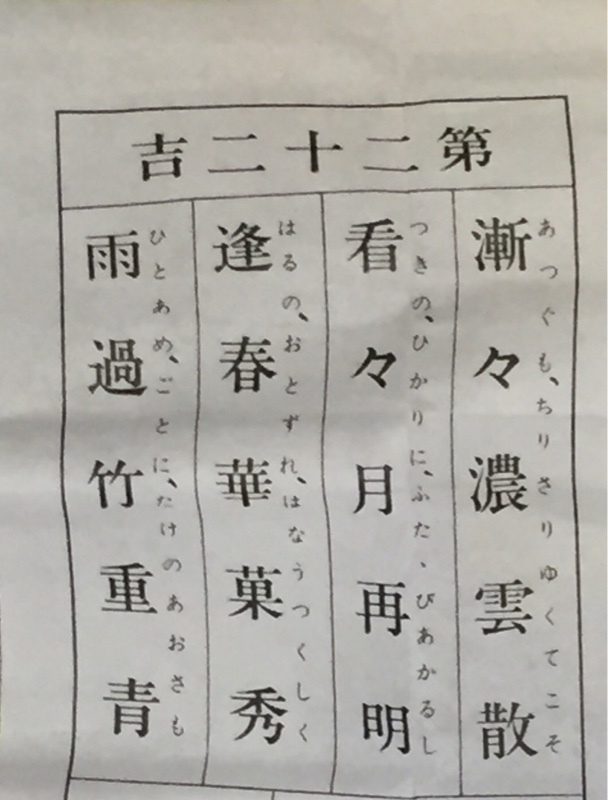 第二十二吉
漸々濃雲散
あつぐも、ちりさりゆくてこそ
看々月再明
つきの、ひかりに、ふた、びあかるし
逢春華菓秀
はるの、おとずれ、はなうつくしく
雨過竹重青
ひとあめ、ごとに、たけのあおさも